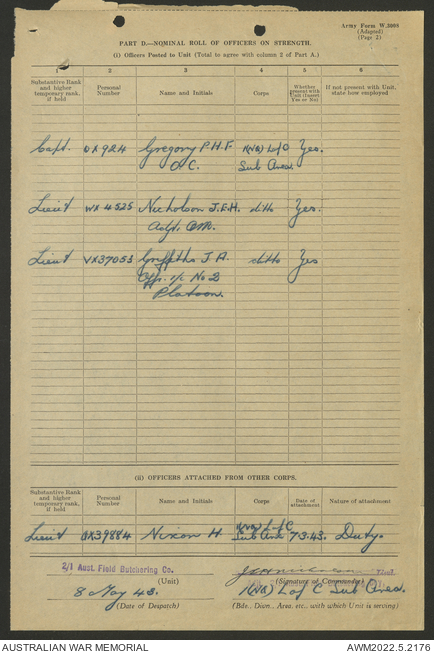 Army Form W.3008
(Adapted)
(Page 2)
PART D.—NOMINAL ROLL OF OFFICERS ON STRENGTH.
(i) Officers Posted to Unit (Total to agree with column 2 of Part A.)
2 3 4 5 6
Substantive Rank and higher temporary rank, if held
Personal Number
Name and Initials
Corps
Whether present with Unit (Insert Yes or No)
If not present with Unit, state how employed
Capt. Gregory P.H.F. 1(NG) L of C Yes.
O.C. Sub Area.
Lieut WX 4525 Nicholson J.E.H. ditto Yes.
Adjt. QM.
Lieut VX37053 Griffiths J A. ditto Yes
Offr. i/c No 2
Platoon.
(ii) OFFICERS ATTACHED FROM OTHER CORPS.
Substantive Rank and higher temporary rank, if held
Personal Number
Name and Initials
Corps
Date of attachment
Nature of attachment
1(NG) L of C
Lieut Nixon H. Sub Area 7.3.43. Duty.
2/1 Aust. Field Butchering Co.
(Unit)
(Signature of Commander)
8 May 43. 1(NG) L of C Sub Area.
(Date of Despatch)
(Bde., Divn., Area, etc., with which Unit is serving)
AUSTRALIAN WAR MEMORIAL
AWM2022.5.2176